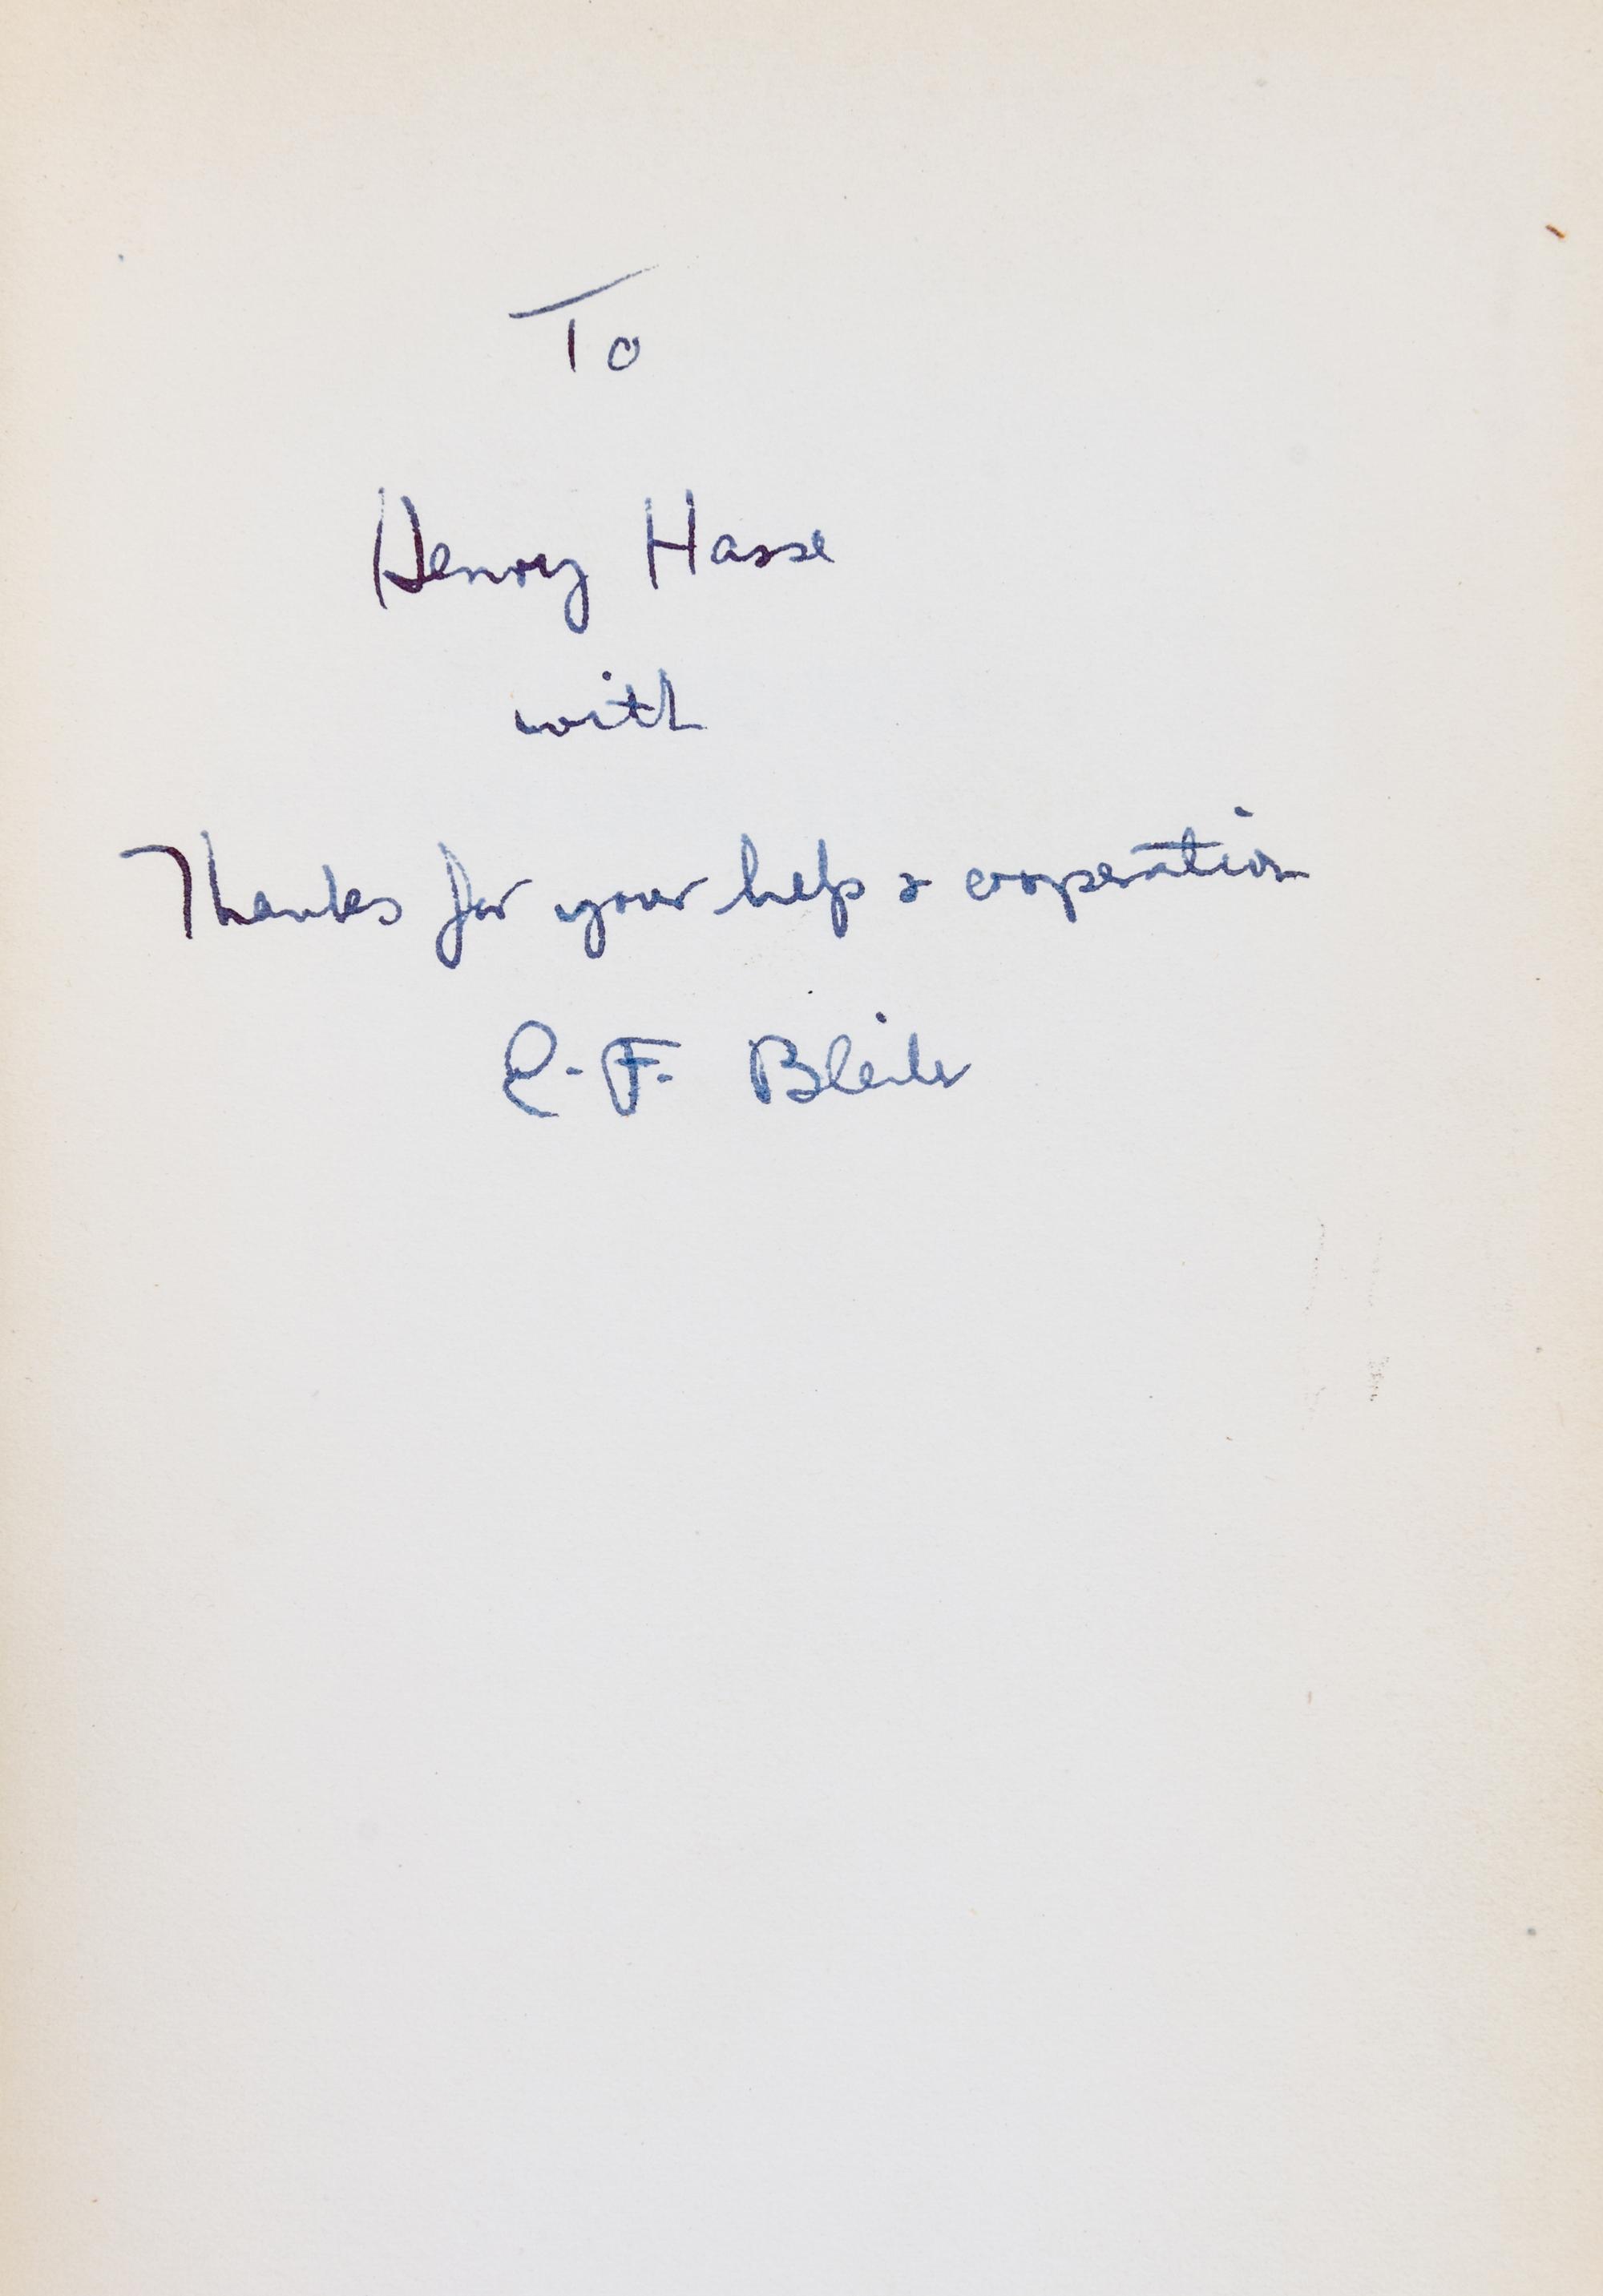 To
Henry Hasse
with
Thanks for your help & cooperation
E. F. Bleiler